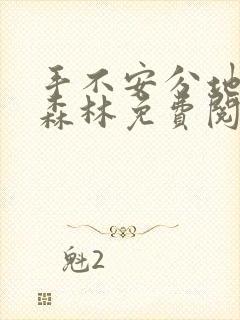 手不安分地
森林免费阅
魁2